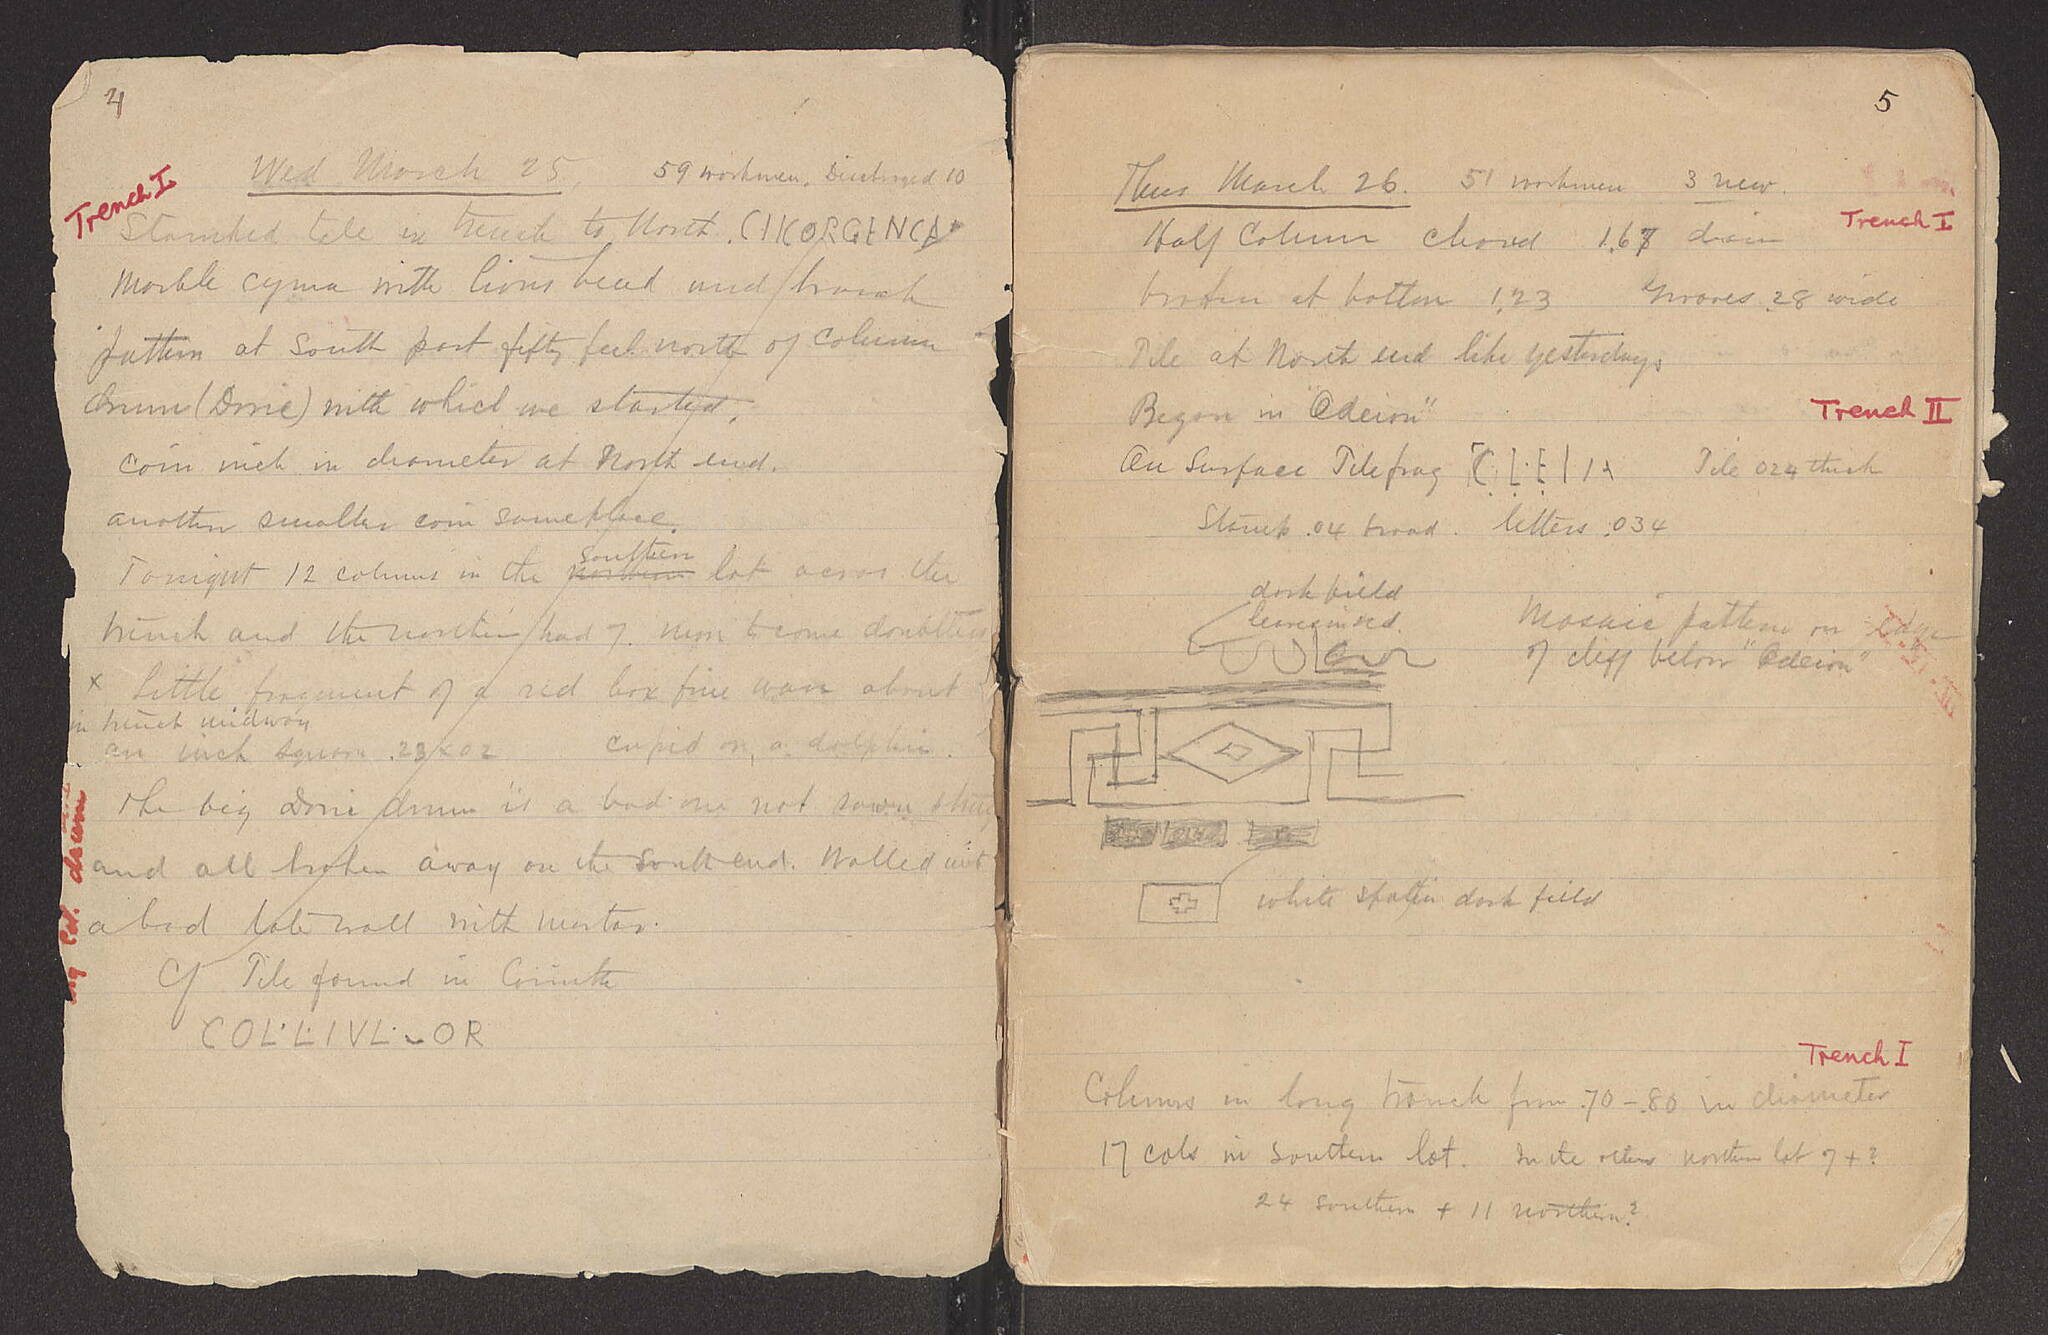 4
Wed March 25. 59 workmen. Discharged 10
Trench I
Stamped tile in trench to North.
Marble cyma with lions head and
pattern at South part fifty feet north of column
drum (Doric) with which we started.
coin inch in diameter at North end.
another smaller coin same place.
southern
Tonight 12 columns in the northern lot across the
trench and the northern had 7. more to come doubtless
x Little fragment of a red box fine ware about
in trench midway
an inch square .23 x 02 cupid on a dolphin.
The big Doric drum is a bad one not
and all broken away on the South end. Walled
a bad late wall with mortar.
Cf Tile found in Corinth
COL·L·IVL·OR
drum
5
Thurs March 26. 51 workmen 3 new.
Trench I
Half Column chord 1.67 diam
broken at bottom 1.23 grooves .28 wide
Tile at North end like yesterdays
Began in "Odeion"
Trench II
On Surface Tile frag Tile 024 thick
Stamp .04 broad. letters .034
dark field
Mosaic pattern on edge
of cliff below "Odeion"
white spot in dark field
Trench I
Columns in long trench from .70 – .80 in diameter
17 cols in southern lot. In the northern lot 7 + ?
24 southern + 11 northern?